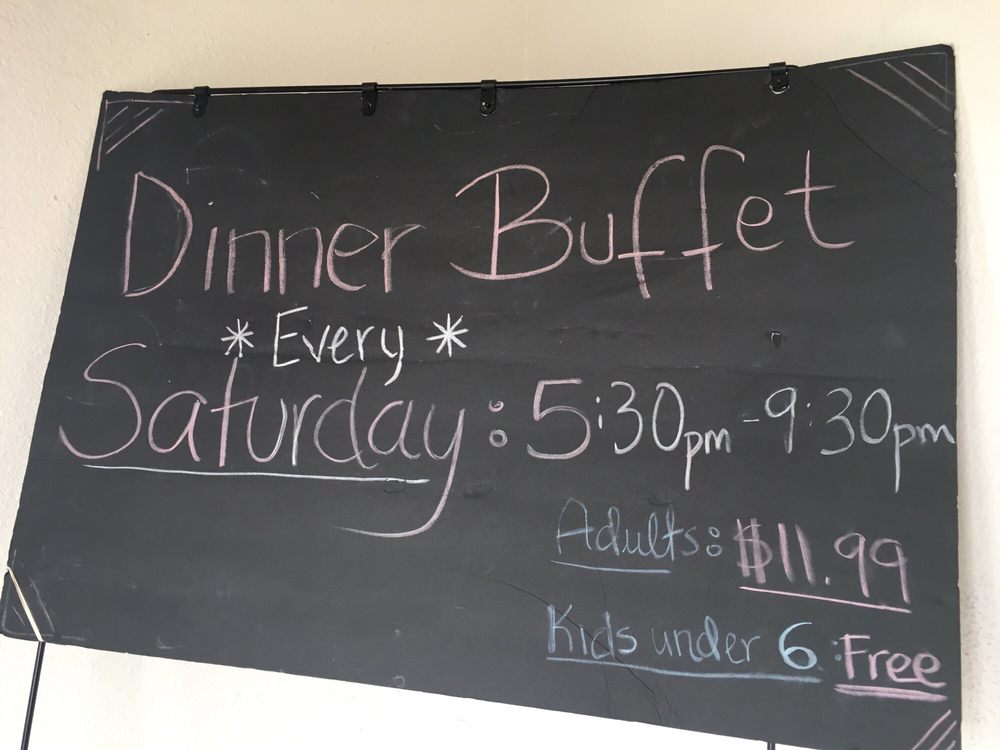 Dinner Buffet
* Every *
Saturday: 5:30pm - 9:30pm
Adults: $11.99
Kids under 6: Free